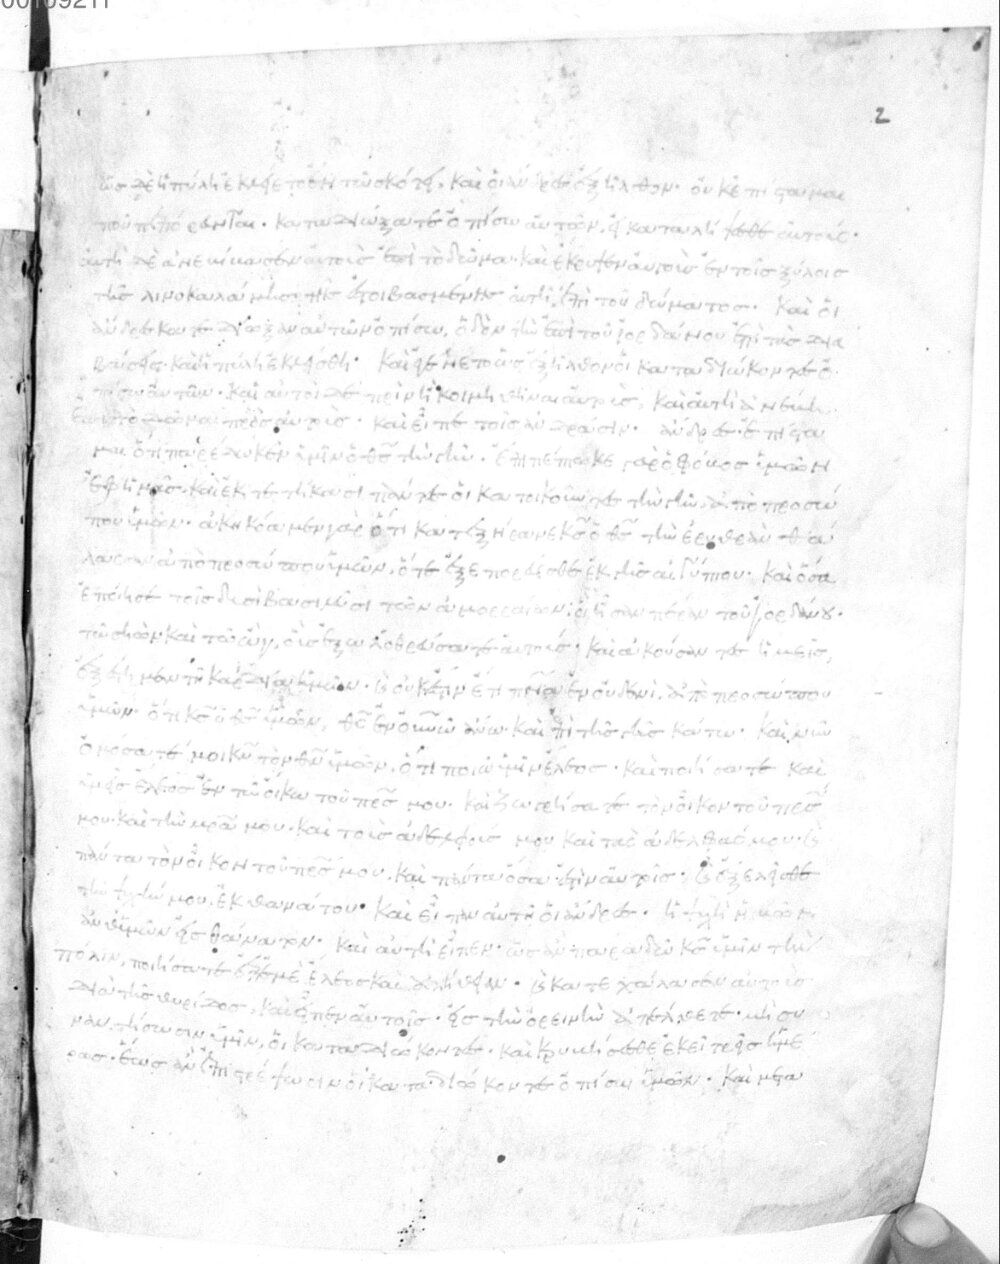 00109211
2
ὡς δὲ ἡ πύλη ἐκλείετο ἐν τῶ σκότει, καὶ οἱ ἄνδρες ἐξῆλθον· οὐκ ἐπίσταμαι
ποῦ πεπόρευνται· καταδιώξατε ὀπίσω αὐτῶν, εἰ καταλήψεσθε αὐτούς·
αὐτὴ δὲ ἀνεβίβασεν αὐτοὺς ἐπὶ τὸ δῶμα· καὶ ἔκρυψεν αὐτοὺς ἐν τοῖς ξύλοις
τῆς λινοκαλάμης τῆς ἐστοιβασμένης αὐτῆ ἐπὶ τοῦ δώματος· Καὶ οἱ
ἄνδρες κατεδίωξαν αὐτῶν ὀπίσω, ὁδὸν τὴν ἐπὶ τοῦ ἰορδάνου ἐπὶ τὰς δια
βάσεις· καὶ ἡ πύλη ἐκλείσθη· Καὶ ἐγένετο ὡς ἐξήλθον οἱ καταδιώκοντες ὀ
πίσω αὐτῶν· καὶ αὐτοὶ δὲ πρὶν ἢ κοιμηθῆναι αὐτοὺς, καὶ αὐτὴ ἀνέβη
ἐπὶ τὸ δῶμα πρὸς αὐτούς· καὶ εἶπε τοῖς ἀνδράσιν· ἄνδρες ἐπίστα
μαι ὅτι παρέδωκεν ὑμῖν ὁ θς τὴν γῆν· ἐπιπέπτωκε γὰρ ὁ φόβος ὑμῶν
ἐφ ἡμᾶς· καὶ ἐκτετήκασι πάντες οἱ κατοικοῦντες τὴν γῆν, ἀπὸ προσώ
που ὑμῶν· ἀκηκόαμεν γὰρ ὅτι κατεξήρανε κς ὁ θς τὴν ἐρυθρὰν θά
λασσαν ἀπὸ προσώπου ὑμῶν, ὅτε ἐξεπορεύεσθε ἐκ γῆς αἰγύπτου· Καὶ ὅσα
ἐποίησε τοῖς δυσὶ βασιλεῦσι τῶν ἀμορραίων, οἳ ἦσαν πέραν τοῦ ἰορδάνου·
τῶ σηὼν καὶ τῶ ὤγ, οὓς ἐξωλοθρεύσατε αὐτούς· Καὶ ἀκούσαντες ἡμεῖς,
ἐξέστημεν τῆ καρδία ἡμῶν· καὶ οὐκ ἔστιν ἔτι πνα ἐν οὐδενὶ, ἀπὸ προσώπου
ὑμῶν· ὅτι κς ὁ θς ὑμῶν, θς ἐν οὐνω ἄνω· καὶ ἐπὶ τῆς γῆς κάτω· Καὶ νῦν
ὀμόσατέ μοι κν τὸν θν ὑμῶν, ὅτι ποιῶ ὑμῖν ἔλεος· καὶ ποιήσατε καὶ
ὑμεῖς ἔλεος ἐν τῶ οἴκω τοῦ πρς μου· καὶ ζωγρήσατε τὸν οἶκον τοῦ πρς
μου· καὶ τὴν μρα μου· καὶ τοὺς ἀδελφούς μου καὶ τὰς ἀδελφάς μου· καὶ
πάντα τὸν οἶκον τοῦ πρς μου· καὶ πάντα ὅσα ἐστὶν αὐτοῖς· καὶ ἐξελεῖσθε
τὴν ψυχήν μου, ἐκ θανάτου· Καὶ εἶπαν αὐτῆ οἱ ἄνδρες· ἡ ψυχὴ ἡμῶν
ἀνθ ὑμῶν εἰς θάνατον· Καὶ αὐτὴ εἶπεν· ὡς ἂν παραδῶ κς ὑμῖν τὴν
πόλιν, ποιήσατε εἰς ἐμὲ ἔλεος καὶ ἀλήθειαν· καὶ κατεχάλασεν αὐτοὺς
διὰ τῆς θυρίδος, καὶ εἶπεν αὐτοῖς· εἰς τὴν ὀρεινὴν ἀπέλθετε· μὴ συ
ναντήσωσιν ὑμῖν, οἱ καταδιώκοντες· καὶ κρυβήσεσθε ἐκεῖ τρεῖς ἡμέ
ρας· ἕως ἂν ἐπιστρέψωσιν οἱ καταδιώκοντες ὀπίσω ὑμῶν· Καὶ μετὰ